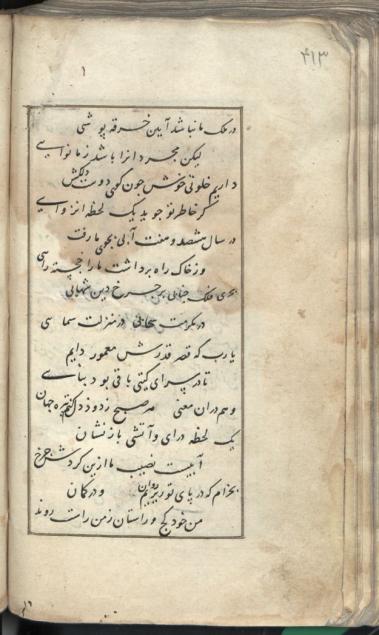 ۴۱۳
۱
در ملک ما نباشد آیین خرقه پوشی
لیکن مجردانرا باشد ز ما نوایی
داریم خلوتی خوش چون کوی دوست دلکش
گر خاطر تو جوید یک لحظه انزوایی
در سال هشصد و هفت آبی بجوی ما رفت
وز خاک راه برداشت ما را خجسته رایی
بحری فلک جنابی بر چرخ دین شهابی
در مکرمت سحابی در منزلت سمایی
یا رب که قصر قدرش معمور دایم
تا در سرای گیتی باقی بود بنایی
وهم در آن معنی هر صبح زدود دل جهان
یک لحظه درآی و آتشی بازنشان
آبیست نصیب ما ازین گردش چرخ
بخرام که در پای تو ریزیم روان
من خود کج و راستان ز من راست روند